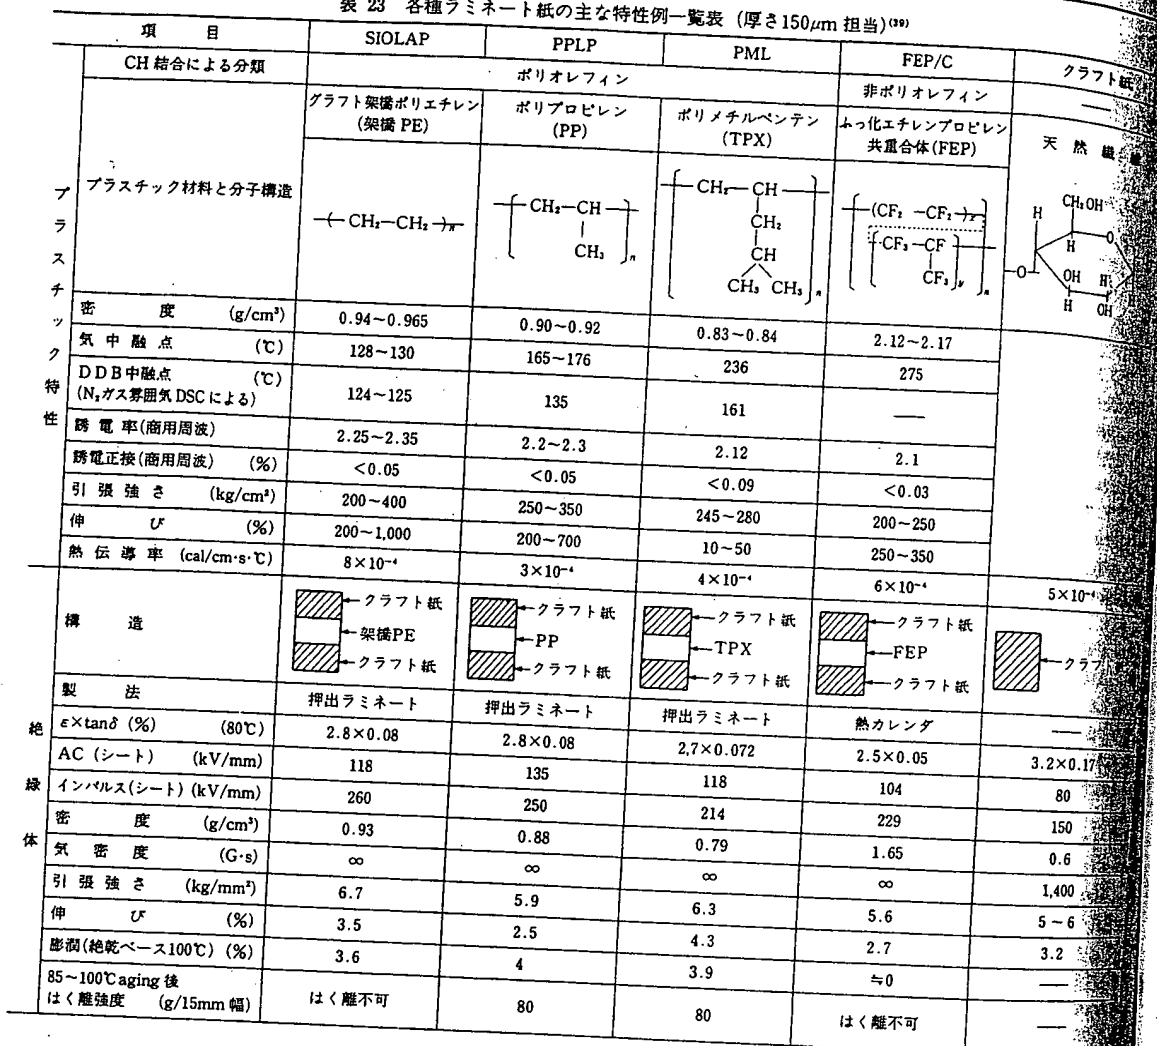 表 23 各種ラミネート紙の主な特性例一覧表 (厚さ150μm 担当)(39)
項 目 SIOLAP PPLP PML FEP/C クラフト紙
CH 結合による分類 ポリオレフィン 非ポリオレフィン —
プラスチック特性
プラスチック材料と分子構造
グラフト架橋ポリエチレン
(架橋 PE)
ポリプロピレン
(PP)
ポリメチルペンテン
(TPX)
ふっ化エチレンプロピレン
共重合体(FEP)
天 然 繊
CH₂—CH₂ n
CH₂—CH
CH₃ n
CH₂—CH
CH₂
CH
CH₃ CH₃ n
(CF₂ —CF₂)x
CF₃—CF
CF₃ y n
CH₂OH
H O
H
O OH H
H OH
密 度 (g/cm³) 0.94~0.965 0.90~0.92 0.83~0.84 2.12~2.17
気 中 融 点 (℃) 128~130 165~176 236 275
DDB中融点 (℃)
(N₂ガス雰囲気 DSC による) 124~125 135 161 —
誘 電 率(商用周波) 2.25~2.35 2.2~2.3 2.12 2.1
誘電正接(商用周波) (%) <0.05 <0.05 <0.09 <0.03
引 張 強 さ (kg/cm²) 200~400 250~350 245~280 200~250
伸 び (%) 200~1,000 200~700 10~50 250~350
熱 伝 導 率 (cal/cm·s·℃) 8×10⁻⁴ 3×10⁻⁴ 4×10⁻⁴ 6×10⁻⁴ 5×10⁻⁴
絶縁体
構 造
クラフト紙 架橋PE クラフト紙
クラフト紙 PP クラフト紙
クラフト紙 TPX クラフト紙
クラフト紙 FEP クラフト紙
クラフ
製 法 押出ラミネート 押出ラミネート 押出ラミネート 熱カレンダ —
ε×tanδ (%) (80℃) 2.8×0.08 2.8×0.08 2.7×0.072 2.5×0.05 3.2×0.17
AC (シート) (kV/mm) 118 135 118 104 80
インパルス(シート) (kV/mm) 260 250 214 229 150
密 度 (g/cm³) 0.93 0.88 0.79 1.65 0.6
気 密 度 (G·s) ∞ ∞ ∞ ∞ 1,400
引 張 強 さ (kg/mm²) 6.7 5.9 6.3 5.6 5~6
伸 び (%) 3.5 2.5 4.3 2.7 3.2
膨潤(絶乾ベース100℃) (%) 3.6 4 3.9 ≒0 —
85~100℃ aging 後
はく離強度 (g/15mm 幅) はく離不可 80 80 はく離不可 —